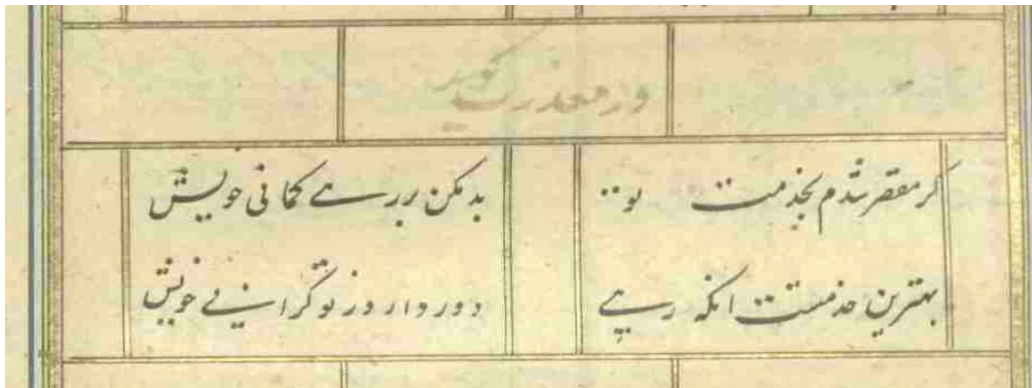 در معذرت گوید
گر مقصر شدم بخدمت تو بد مکن بر رهے گمانی خویش
بهترین خدمتت انکه رہے دور دارد ز تو گرانیے خویش